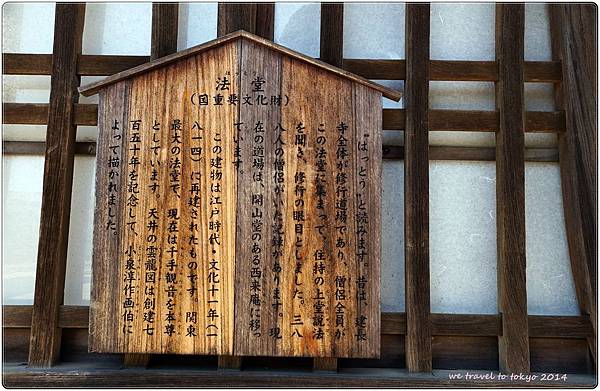 法堂
(国重要文化財)
"はっとう"と読みます。昔は、建長
寺全体が修行道場であり、僧侶全員が
この法堂に集まって、住持の上堂説法
を聞き、修行の眼目としました。三八
八人の僧侶がいた記録があります。現
在の道場は、開山堂のある西来庵に移っ
ています。
この建物は江戸時代・文化十一年(一
八一四)に再建されたものです。関東
最大の法堂で、現在は千手観音を本尊
としています。天井の雲龍図は創建七
百五十年を記念して、小泉淳作画伯に
よって描かれました。
we travel to tokyo 2014